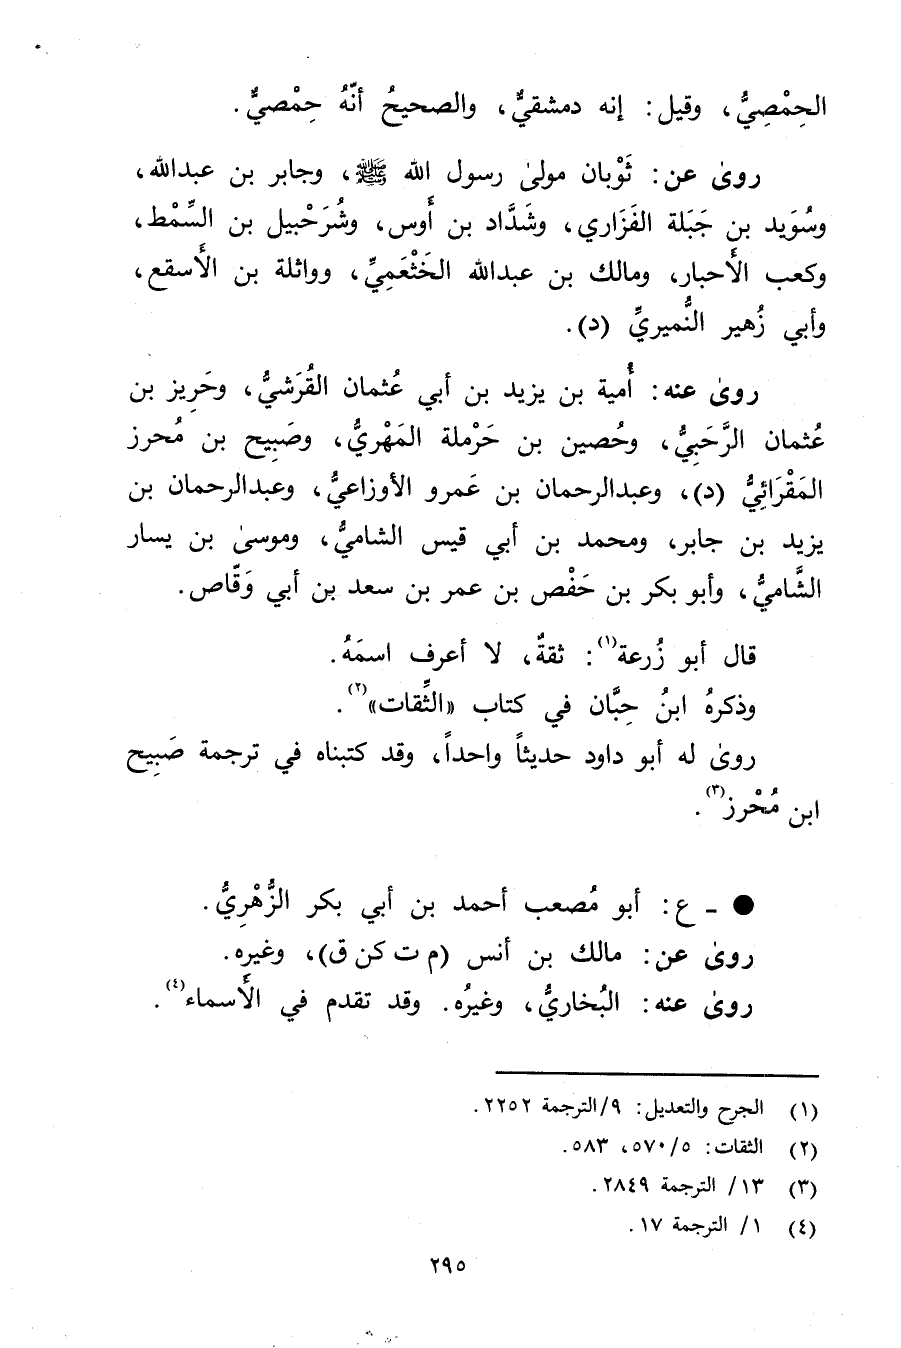 الحِمْصِيُّ، وقيل: إنه دمشقيٌّ، والصحيحُ أنَّهُ حِمْصيٌّ.
روىٰ عن: ثَوْبان مولىٰ رسول الله ﷺ، وجابر بن عبدالله،
وسُوَيد بن جَبَلة الفَزَاري، وشَدَّاد بن أَوس، وشُرَحْبيل بن السِّمْط،
وكعب الأَحبار، ومالك بن عبدالله الخَثْعَمِيِّ، وواثلة بن الأَسقع،
وأبي زُهير النُّميريِّ (د).
روىٰ عنه: أُمية بن يزيد بن أبي عُثمان القُرَشيُّ، وحَرِيز بن
عُثمان الرَّحَبِيُّ، وحُصين بن حَرْملة المَهْريُّ، وصَبِيح بن مُحرز
المَقْرَائِيُّ (د)، وعبدالرحمان بن عَمرو الأوزاعيُّ، وعبدالرحمان بن
يزيد بن جابر، ومحمد بن أبي قيس الشاميُّ، وموسىٰ بن يسار
الشَّاميُّ، وأبو بكر بن حَفْص بن عمر بن سعد بن أبي وَقَّاص.
قال أبو زُرعة(١): ثقةٌ، لا أعرف اسمَهُ.
وذكرهُ ابنُ حِبَّان في كتاب «الثِّقات»(٢).
روىٰ له أبو داود حديثاً واحداً، وقد كتبناه في ترجمة صَبِيح
ابن مُحْرز(٣).
● ـ ع: أبو مُصعب أحمد بن أبي بكر الزُّهْرِيُّ.
روىٰ عن: مالك بن أنس (م ت كن ق)، وغيره.
روىٰ عنه: البُخاريُّ، وغيرُه. وقد تقدم في الأَسماء(٤).
(١) الجرح والتعديل: ٩/الترجمة ٢٢٥٢.
(٢) الثقات: ٥/٥٧٠، ٥٨٣.
(٣) ١٣/ الترجمة ٢٨٤٩.
(٤) ١/ الترجمة ١٧.
٢٩٥